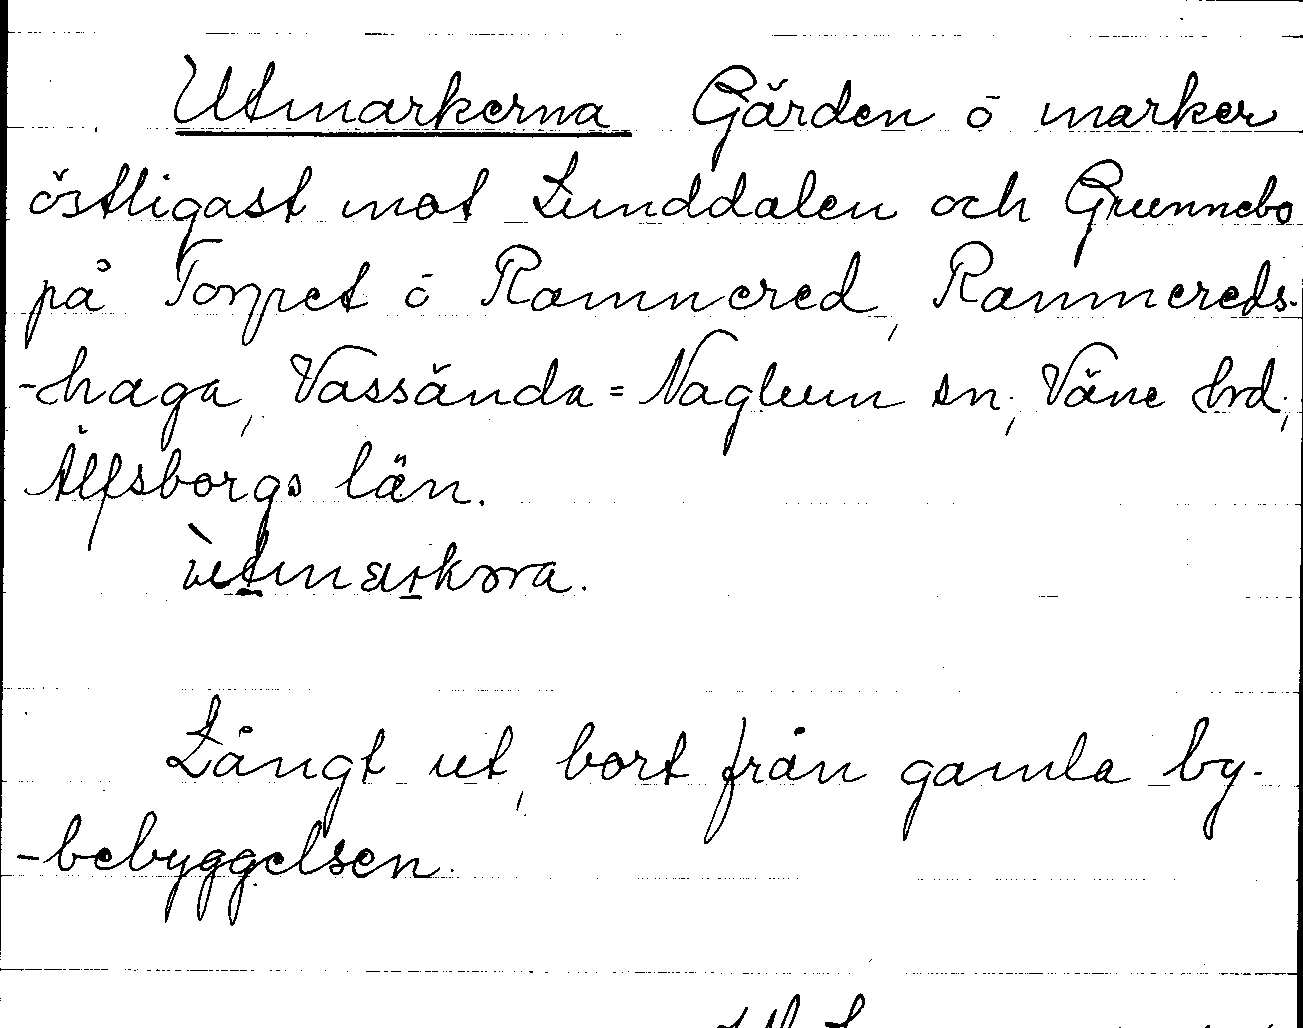 Utmarkerna Gärden ō marker
östligast mot Lunddalen och Grunnebo
på Torpet ō Ramnered, Ramnereds-
-haga, Vassända=Naglum sn; Väne hrd;
Älfsborgs län.
Långt ut, bort från gamla by-
-bebyggelsen.